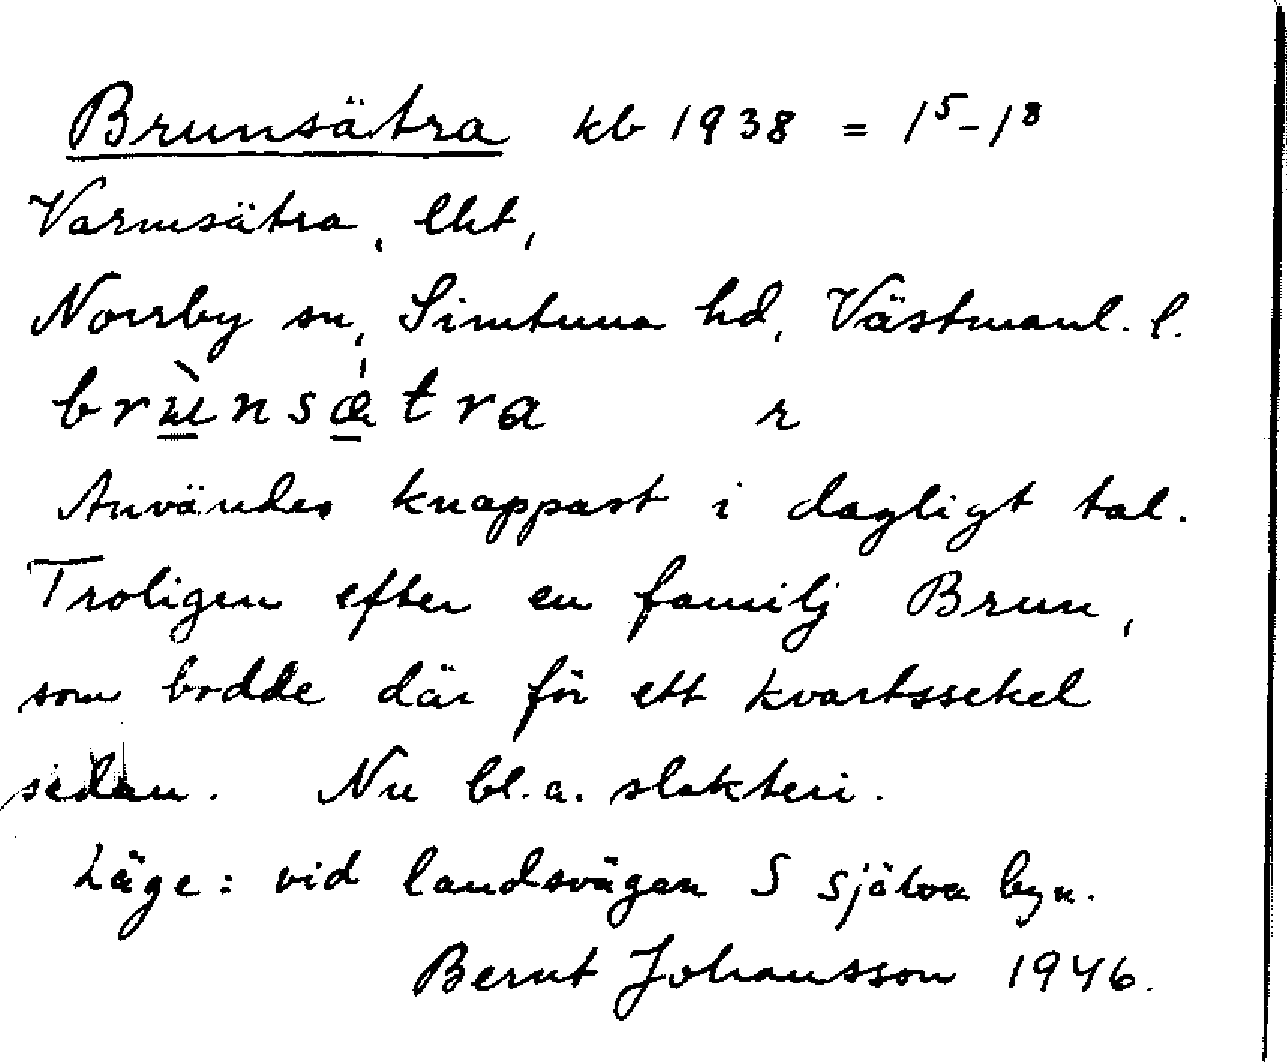 Brunsätra kb 1938 = 1⁵-1⁸
Varmsätra, lht,
Norrby sn, Simtuna hd, Västmanl. l.
brùnsætra r
Användes knappast i dagligt tal.
Troligen efter en familj Brun,
som bodde där för ett kvartssekel
sedan. Nu bl.a. slakteri.
Läge: vid landsvägen S själva byn.
Bernt Johansson 1946.